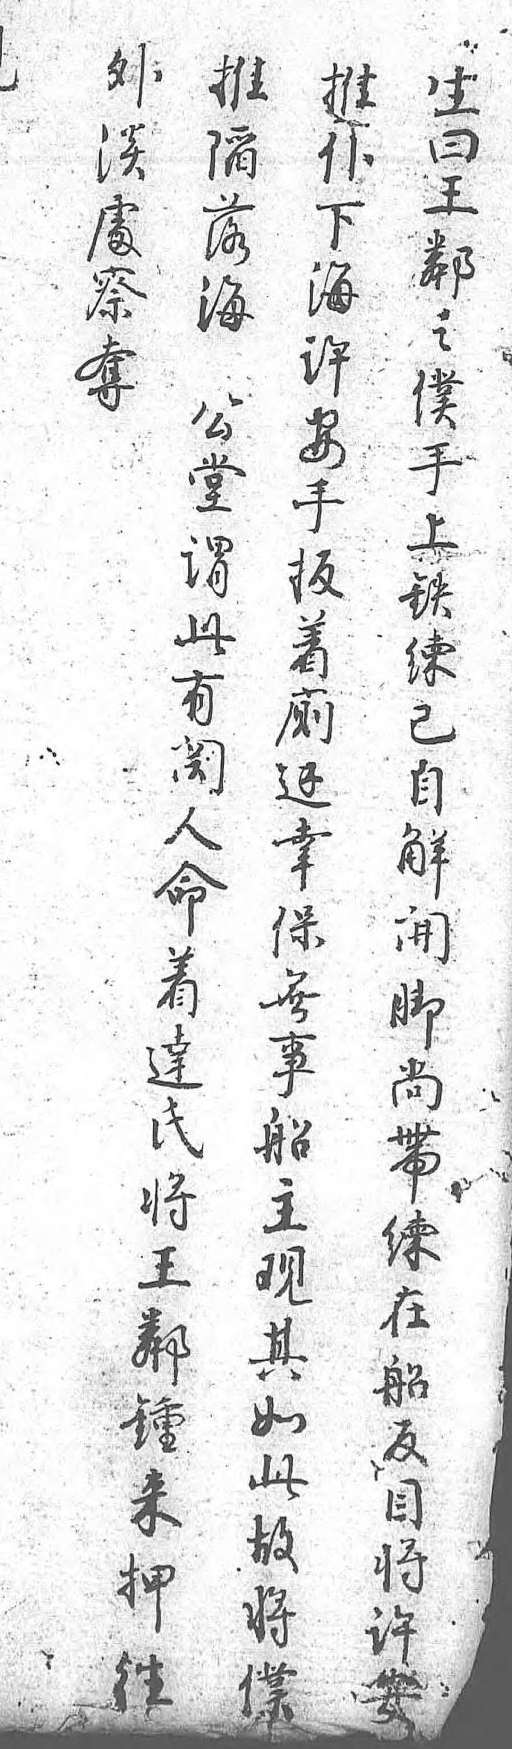 生曰王鄰之僕手上鉄練已自解開脚尚帶練在船反目将許安
推仆下海許安手扳着廁𨒪幸保無事船主观其如此故将僕
推陷落海 公堂謂此有関人命着達氏将王鄰鍾来押往
外淡處察奪